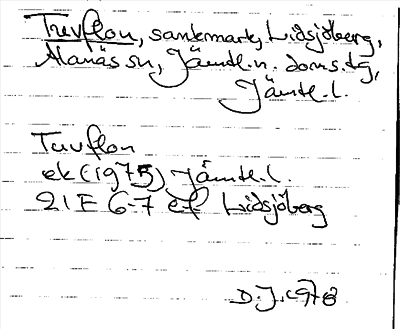 Tuvflon, sankmark, Lidsjöberg,
Alanäs sn, Jämtl. n. doms.tg,
Jämtl. l.
Tuvflon
ek (1975) Jämtl. l.
21E 6-7 e-f Lidsjöberg
D. J. 1978